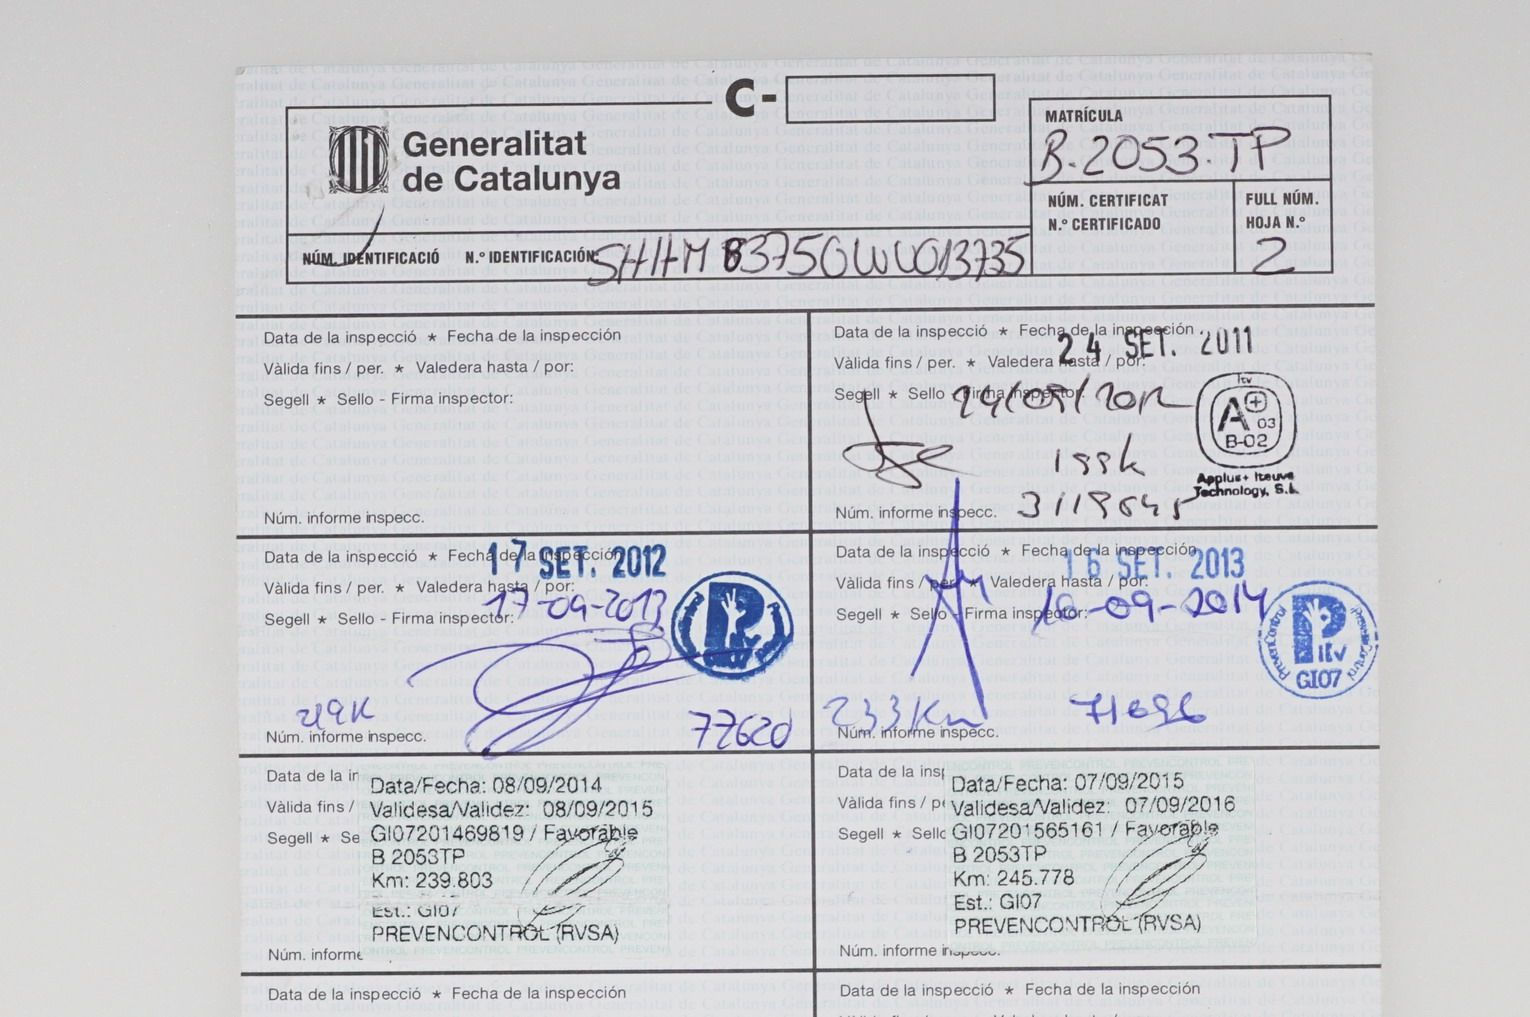 C-
Generalitat
de Catalunya
MATRÍCULA
B-2053-TP
NÚM. CERTIFICAT
N.º CERTIFICADO
FULL NÚM.
HOJA N.º
2
NÚM. IDENTIFICACIÓ N.º IDENTIFICACIÓN:
Data de la inspecció * Fecha de la inspección
Vàlida fins / per. * Valedera hasta / por:
Segell * Sello - Firma inspector:
Núm. informe inspecc.
Data de la inspecció * Fecha de la inspección
24 SET. 2011
Vàlida fins / per. * Valedera hasta / por:
Segell * Sello - Firma inspector:
24/09/2012
itv
A+ 03
B-02
Applus+ Iteuve
Technology, S.L.
199k
Núm. informe inspecc.
Data de la inspecció * Fecha de la inspección
17 SET. 2012
Vàlida fins / per. * Valedera hasta / por:
Segell * Sello - Firma inspector:
17-09-2013
219K
77620
Núm. informe inspecc.
Data de la inspecció * Fecha de la inspección
16 SET. 2013
Vàlida fins / per. * Valedera hasta / por:
Segell * Sello - Firma inspector:
16-09-2014
PrevenControl
itv
GI07
PrevenControl
233Km
71696
Núm. informe inspecc.
Data de la in
Vàlida fins /
Segell * Se
Data/Fecha: 08/09/2014
Validesa/Validez: 08/09/2015
GI07201469819 / Favorable
B 2053TP
Km: 239.803
Est.: GI07
PREVENCONTROL (RVSA)
Núm. informe
Data de la insp
Vàlida fins / pe
Segell * Sello
Data/Fecha: 07/09/2015
Validesa/Validez: 07/09/2016
GI07201565161 / Favorable
B 2053TP
Km: 245.778
Est.: GI07
PREVENCONTROL (RVSA)
Núm. informe inspecc.
Data de la inspecció * Fecha de la inspección
Data de la inspecció * Fecha de la inspección